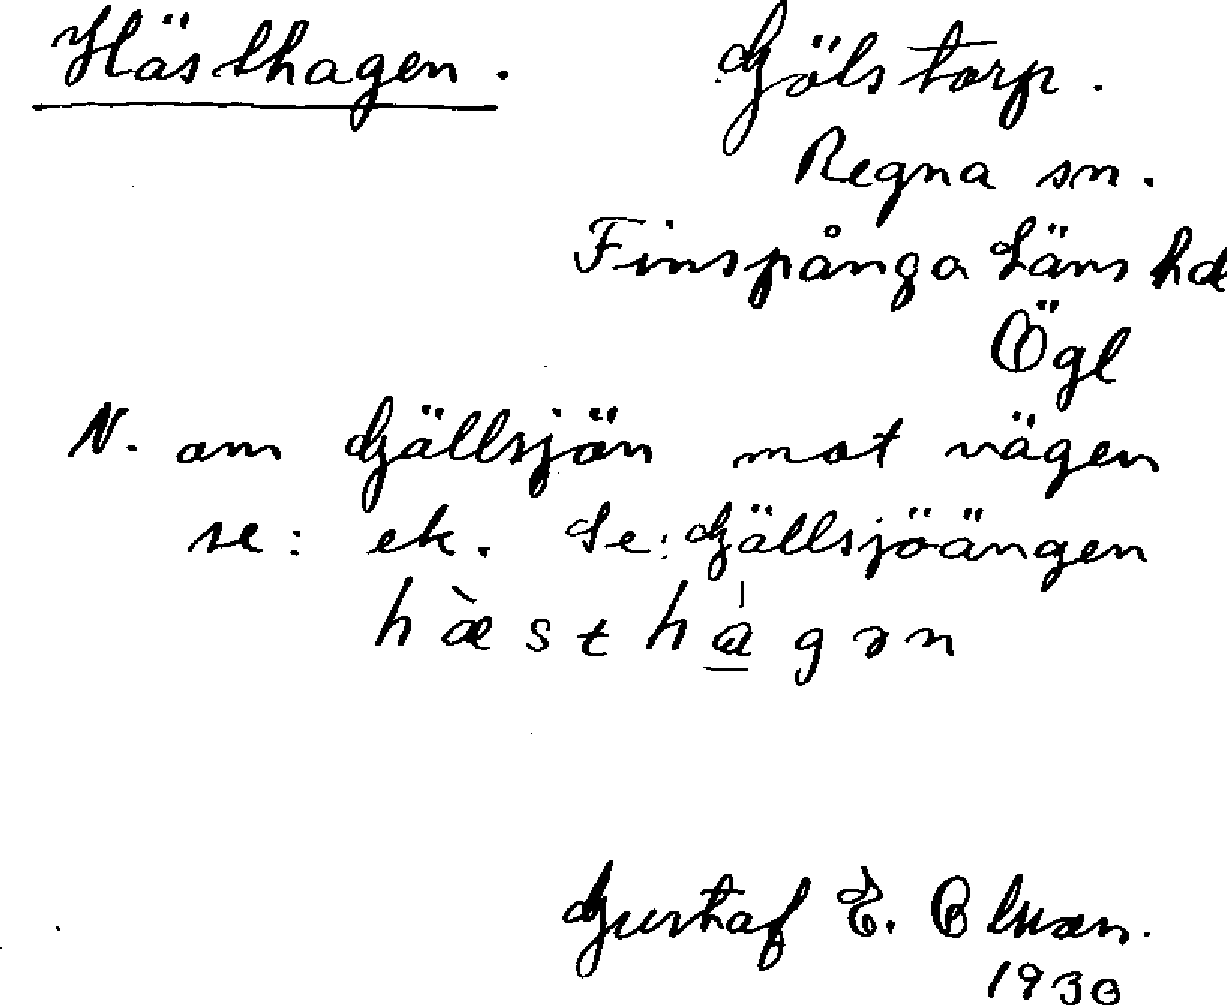 Hästhagen. Gölstorp.
Regna sn.
Finspånga Läns hd
Ögl
N. om Gällsjön mot vägen
se: ek. Se: Gällsjöängen
hæ̀stha̲̍gən
Gustaf E. Olsson.
1930